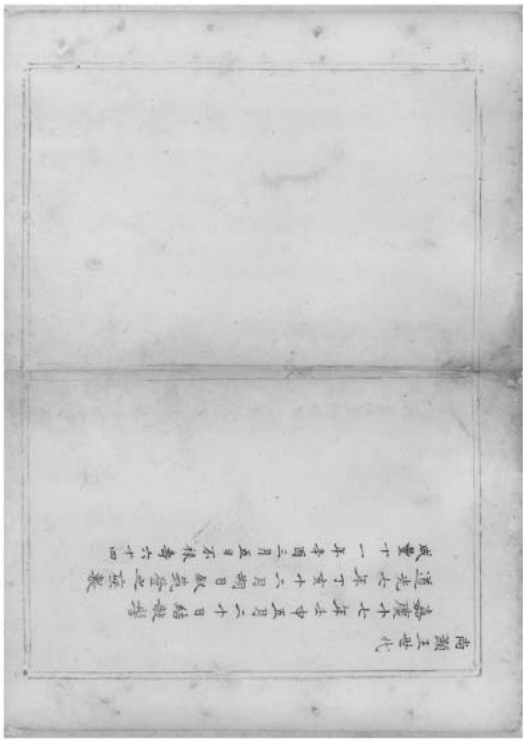 尚灝王世代
嘉慶十七年壬申五月二十日結欹髻
道光七年丁亥十二月朔日叙筑登之座敷
咸豐十一年辛酉三月五日不祿壽六十四